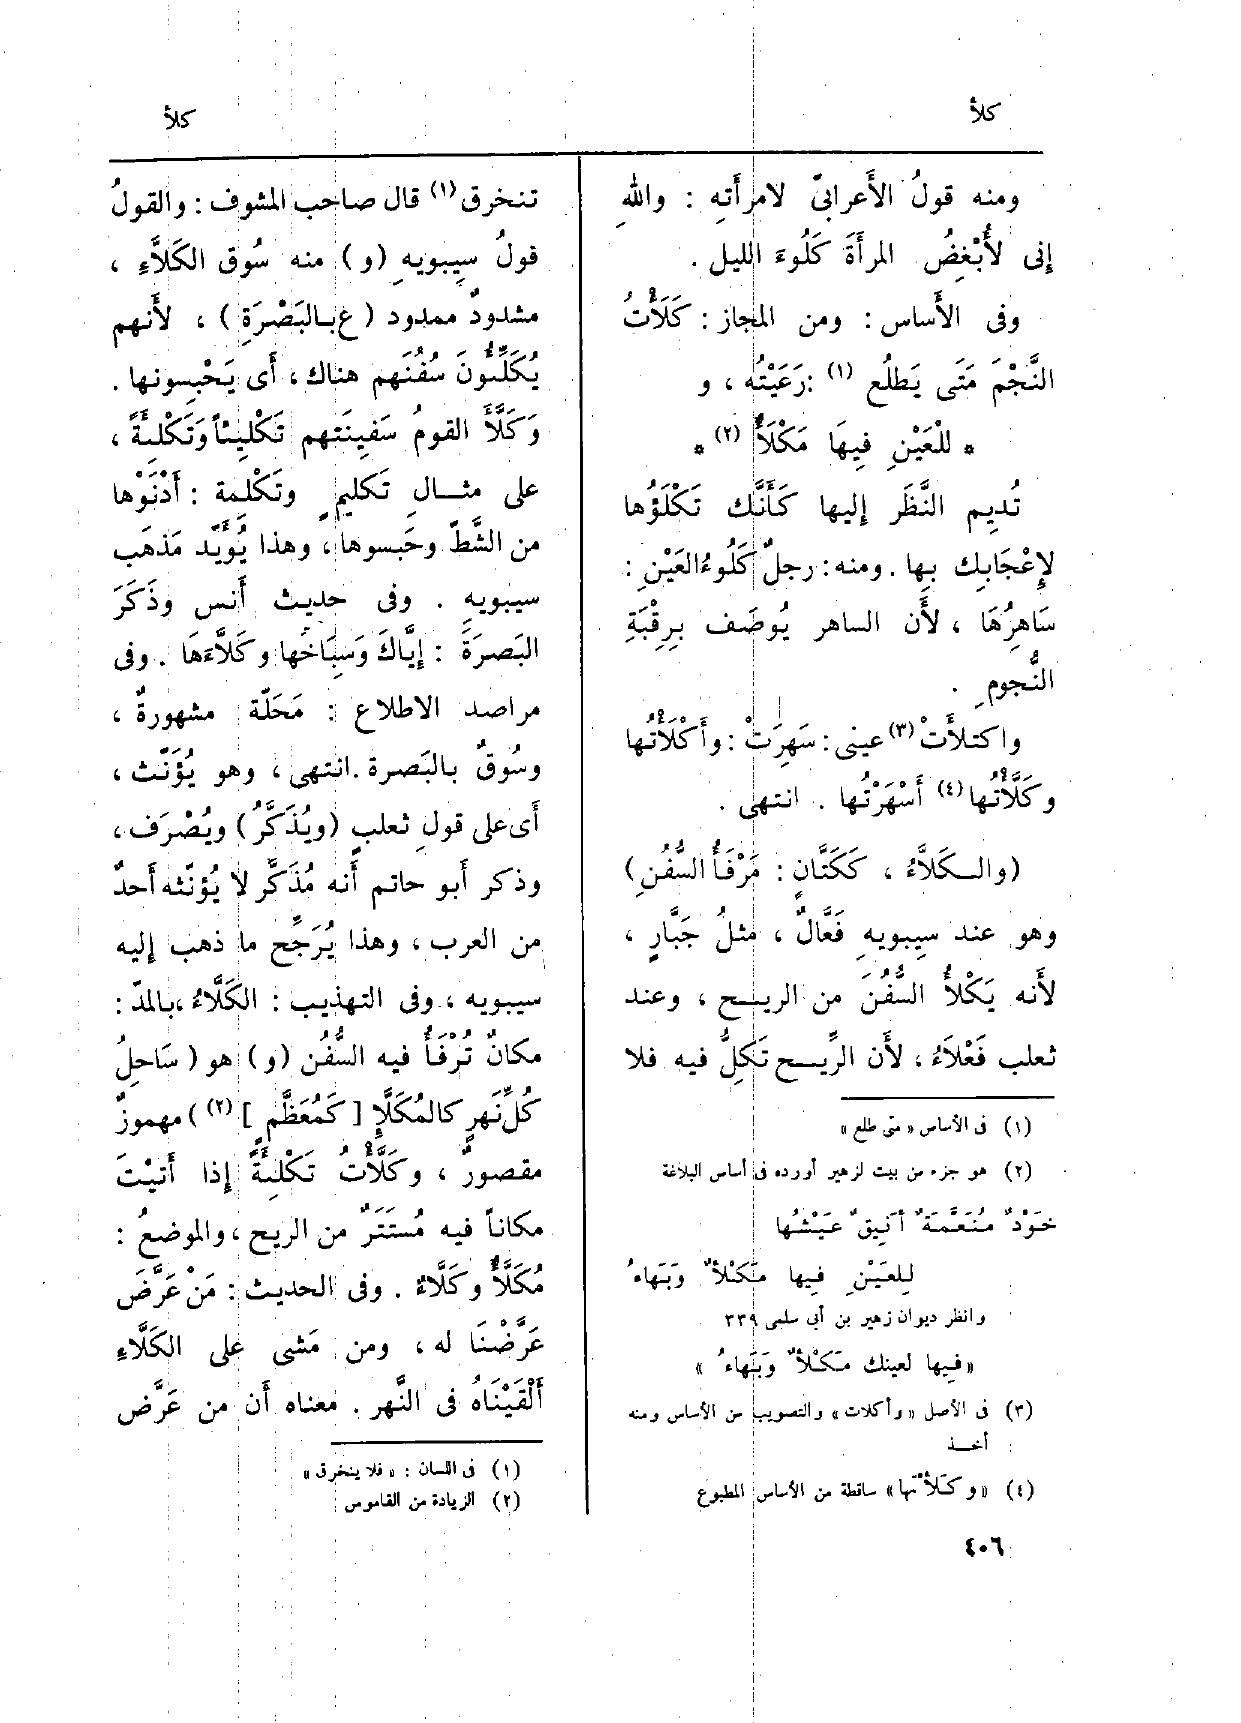 كلأ
كلأ
ومنه قولُ الأَعرابىّ لامرأَتهِ : واللهِ
إنى لأُبْغِضُ المرأَةَ كَلُوءَ الليل .
وفى الأَساس : ومن المجاز : كَلَأْتُ
النَّجْمَ مَتَى يَطلُع (١) : رَعَيْتُه ، و
* للْعَيْنِ فِيهَا مَكْلَأٌ (٢) *
تُديم النَّظَر إليها كَأَنَّك تَكْلَؤُها
لإِعْجَابِك بِها . ومنه : رجلٌ كَلُوءُ العَيْنِ :
سَاهِرُهَا ، لأَن الساهر يُوصَف بِرِقْبَةِ
النُّجومِ .
واكتلأَتْ (٣) عينى : سَهِرَتْ : وأَكْلَأْتُها
وكَلَّأْتُها (٤) أَسْهَرْتُها . انتهى .
(والكَلَّاءُ ، كَكَتَّانٍ : مَرْفَأُ السُّفُنِ)
وهو عند سِيبويهِ فَعَّالٌ ، مثلُ جَبَّارٍ ،
لأَنه يَكْلأُ السُّفُنَ من الريح ، وعند
ثعلب فَعْلَاءُ ، لأَن الرِّيح تَكِلُّ فيه فلا
(١) فى الأساس « متى طلع »
(٢) هو جزء من بيت لزهير أورده فى أساس البلاغة
خَوْدٌ مُنَعَّمَةٌ أَنِيقٌ عَيْشُها
لِلعَيْنِ فِيها مَكْلأٌ وَبَهاءُ
وانظر ديوان زهير بن أبي سلمى ٣٣٩
« فِيها لعينك مَكْلأٌ وَبَهاءُ »
(٣) فى الأصل « وأكلات » والتصويب من الأساس ومنه
أخذ
(٤) « وكَلأْتها » ساقطة من الأساس المطبوع
٤٠٦
تنخرق (١) قال صاحب المشوف : والقولُ
قولُ سِيبويهِ (و) منه سُوق الكَلَّاءِ ،
مشدودٌ ممدود ( ع بالبَصْرَةِ ) ، لأَنهم
يُكَلِّئُونَ سُفُنَهم هناك ، أَى يَحْبِسونها .
وَكَلَّأَ القومُ سَفِينَتهم تَكْلِيئاً وَتَكْلِئَةً ،
على مثالِ تَكليمٍ وتَكْلِمة : أَدْنَوْها
من الشَّطّ وحَبسوها ، وهذا يُؤَيّد مَذهَب
سيبويهِ . وفى حديث أَنس وذَكَرَ
البَصرَةَ : إيَّاكَ وَسِبَاخَها وكَلَّاءَهَا . وفى
مراصد الاطلاع : مَحَلّة مشهورةٌ ،
وسُوقٌ بالبَصرة . انتهى ، وهو يُؤَنَّث ،
أَى على قول ثعلبٍ (ويُذَكَّرُ) ويُصْرَف ،
وذكر أَبو حاتم أَنه مُذَكَّر لا يُؤنّثه أَحدٌ
من العرب ، وهذا يُرَجِّح ما ذهب إليه
سيبويه ، وفى التهذيب : الكَلَّاءُ ، بالمدّ :
مكانٌ تُرْفَأُ فيه السُّفُن (و) هو ( سَاحِلُ
كُلِّ نَهرٍ كالمُكَلَّإِ [ كَمُعَظَّمٍ ] (٢) ) مهموزٌ
مقصورٌ ، وكَلَّأْتُ تَكْلِئَةً إذا أَتيْتَ
مكاناً فيه مُستَتَرٌ من الريح ، والموضعُ :
مُكَلَّأٌ وكَلَّاءٌ . وفى الحديث : مَنْ عَرَّضَ
عَرَّضْنَا له ، ومن مَشى على الكَلَّاءِ
أَلْقَيْنَاهُ فى النَّهر . معناه أَن من عَرَّض
(١) فى اللسان : « فلا ينخرق »
(٢) الزيادة من القاموس